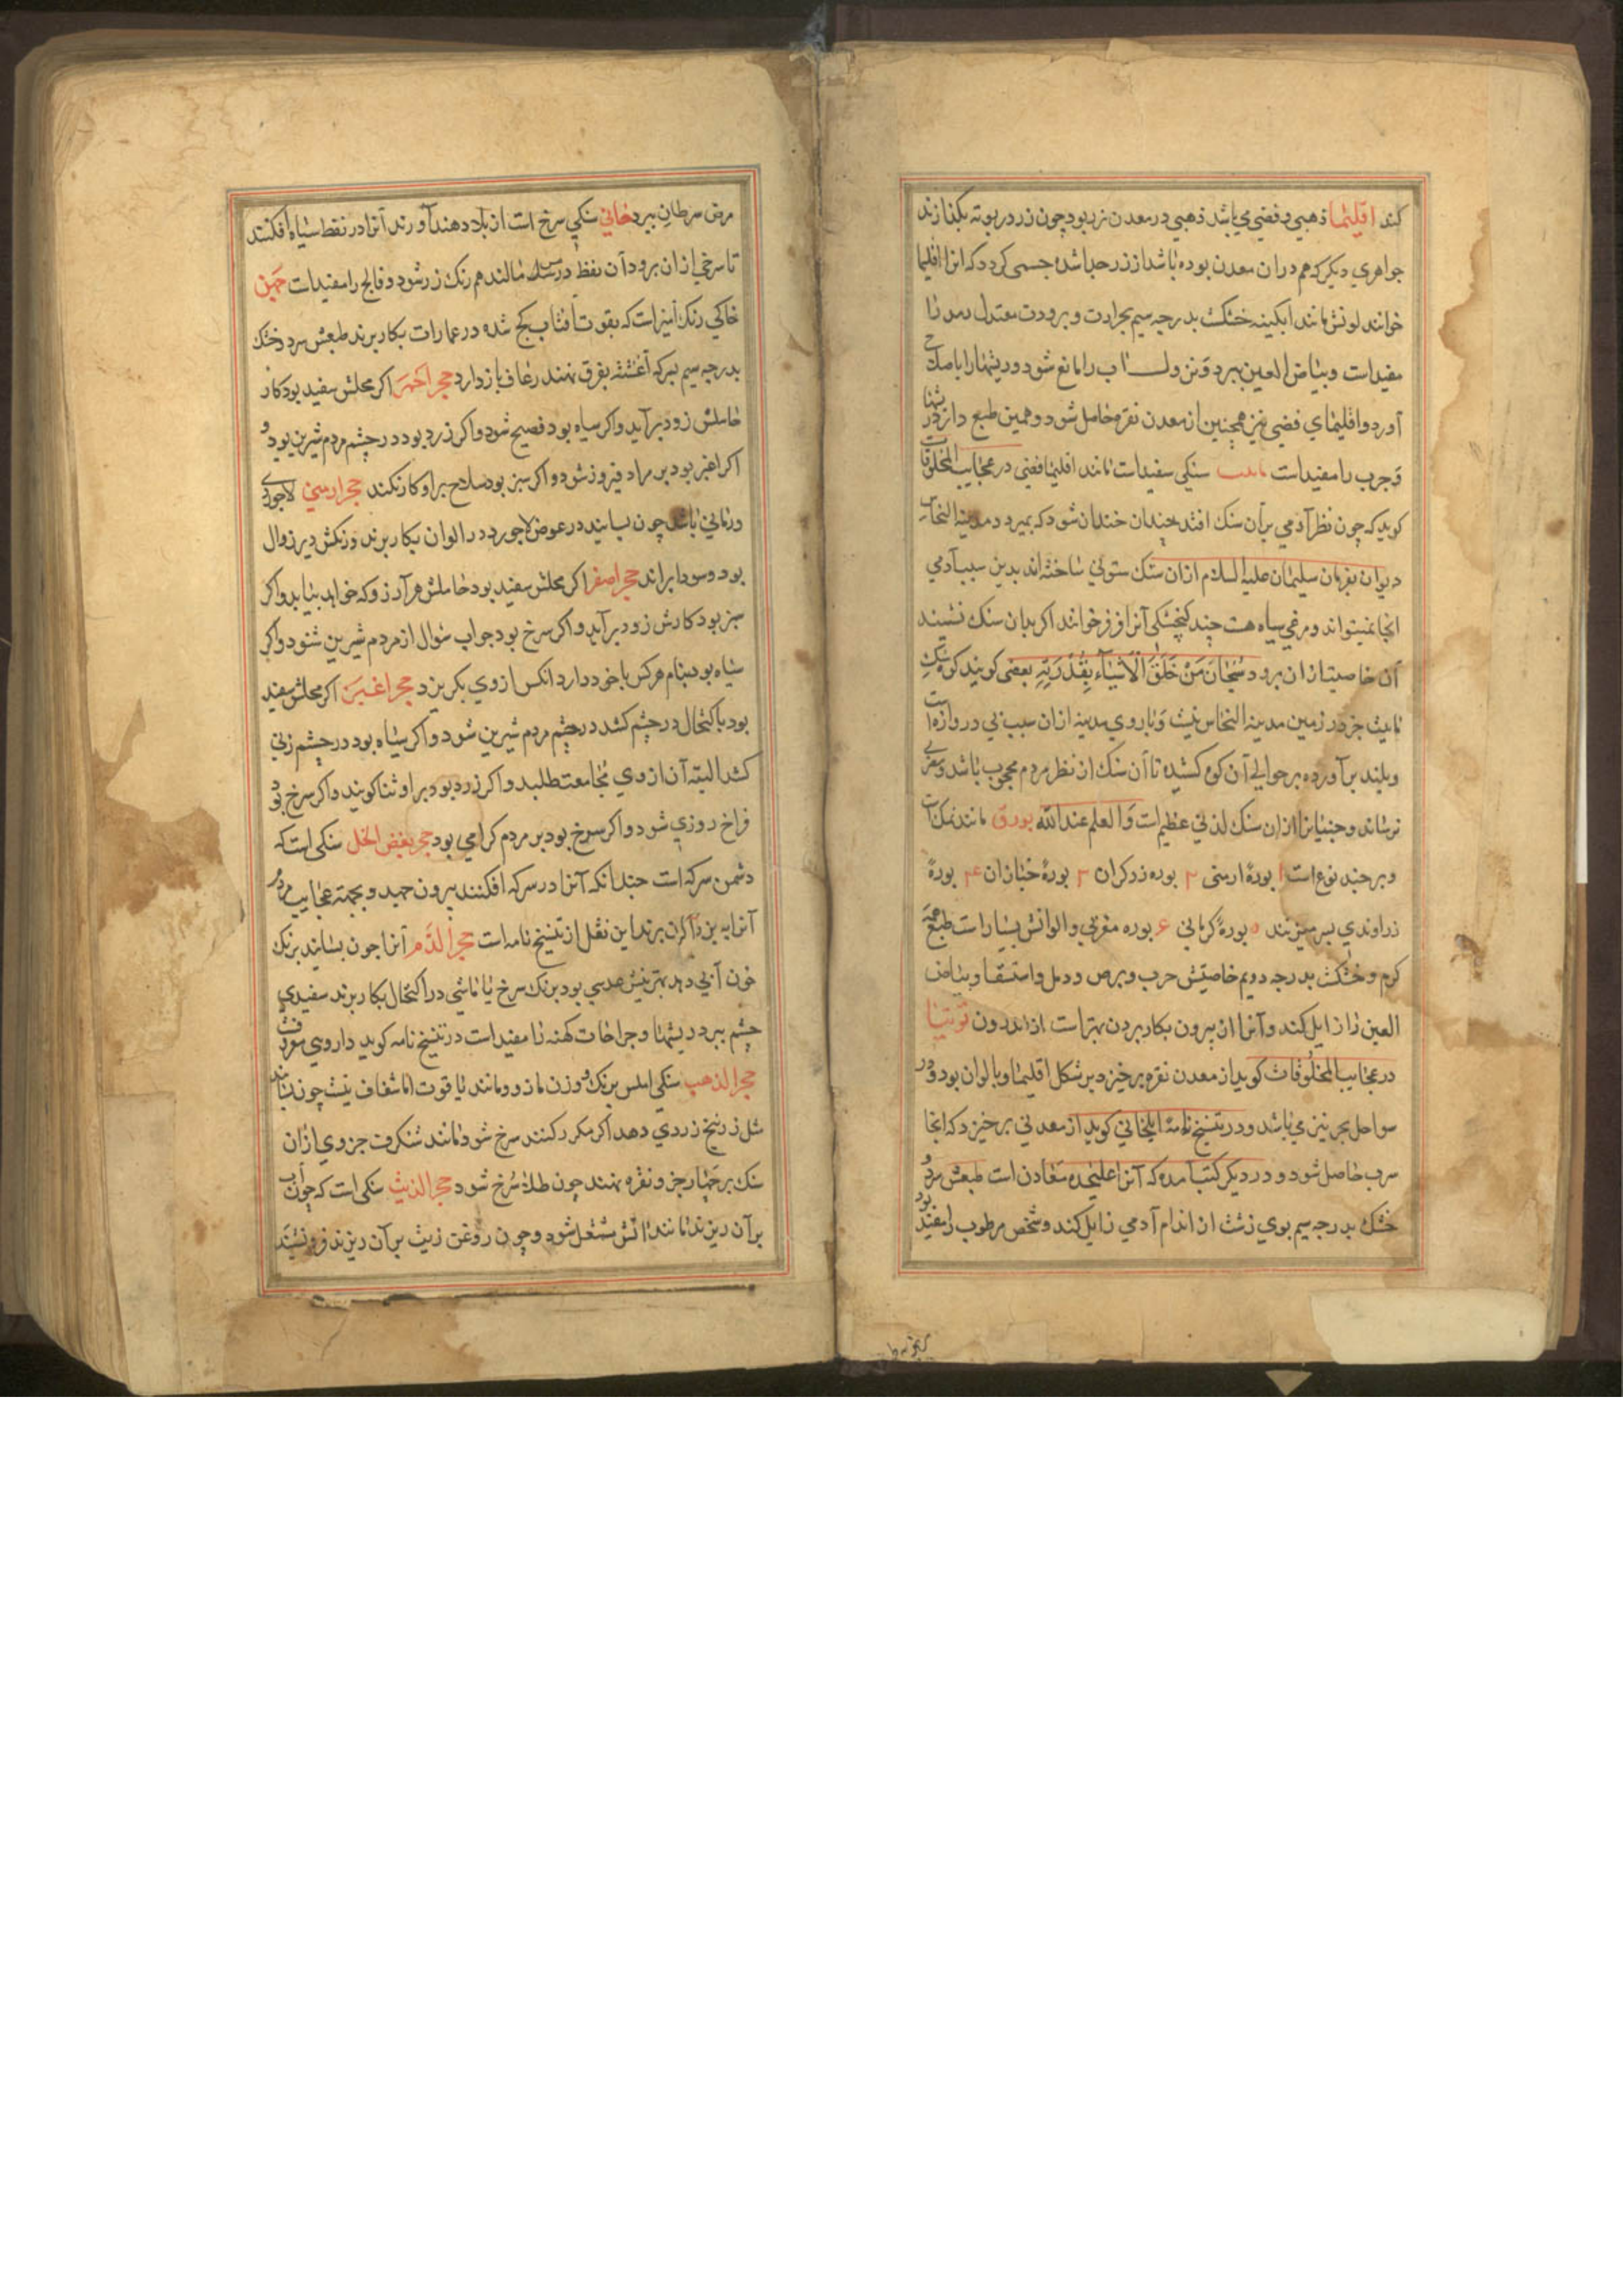 کند اقلیمیا ذهبی و فضی می باشد ذهبی در معدن زر بود چون زر در بوته بگدازند
جواهری دیگر که هم در ان معدن بوده باشد از زر جدا شده جسمی کردد که انرا اقلیمیا
خوانند لونش مانند ابکینه خشکست بدرجه سیم بحرارت و برودت معتدل رمد را
مفید است و بیاض العین ببرد را مانع شود و ریشها را باصلاح
آورد و اقلیمیای فضی نیز همچنین از معدن نقره حاصل شود و همین طبع دارد
و جرب را مفید است سنکی سفید است مانند اقلیمیا فضی در عجایب المخلوقات
کوید که چون نظر آدمی بر آن سنک افتد چندان خندان شود که بمیرد و مدینة النحاس
دیوان بفرمان سلیمان علیه السلام از ان سنک ستونی ساخته اند بدین سبب آدمی
انجا نمیتواند و مرغی سیاه هست چند کنجشکی آنرا فرفر خوانند اکر بدان سنک نشیند
آن خاصیت از ان برود سُبْحَانَ مَنْ خَلَقَ الْاَشْیَآءَ بِقُدْرَتِهِ بعضی کویند کوه سنک
باهت جز در زمین مدینة النحاس نیست و باروی مدینه از ان سبب بی دروازه است
و بلند بر آورده بر حوالی آن کوه کشیده تا آن سنک از نظر مردم محجوب باشد و
نرساند و جنیانرا از ان سنک لذتی عظیم است و العلم عند الله بورق مانند نمک است
و بر چند نوع است ۱ بورهٔ ارمنی ۲ بوره زرکران ۳ بورهٔ خبازان ۴ بورهٔ
زراوندی ۵ بورهٔ کرمانی ۶ بوره مغربی و الوانش بسیار است طبع همه
کرم و خشکست بدرجه دویم خاصیتش جرب و برص و دمل و استسقا و بیاض
العین را زایل کند و آنرا از بیرون بکار بردن بهتر است از اندرون توتیا
در عجایب المخلوقات کوید از معدن نقره برخیزد بر شکل اقلیمیا و بالوان بود و در
سواحل بحر نیز می باشد و در تنسیخ نامهٔ ایلخانی کوید از معدنی برخیزد که انجا
سرب حاصل شود و در دیکر کتب آمده که آنرا علیحده معادن است طبعش سرد و
خشک بدرجه سیم بوی زشت از اندام آدمی زایل کند و شخص مرطوب را مفید بود
مرض سرطان ببرد خانی سنکی سرخ است از بلاد دهند آورند آنرا در نفط سیاه افکنند
تا سرخی از ان برود آن نفط در مس مالند هم رنک زر شود و فالج را مفید است
خاکی رنک آمیز است که بقوت آفتاب کج شده در عمارات بکار برند طبعش سرد و خشک
بدرجه سیم بسرکه آغشته بفرق نهند رعاف باز دارد حجر احمر اکر محلش سفید بود کار
حاملش زود بر آید و اکر سیاه بود فصیح شود و اکر زرد بود در چشم مردم شیرین بود و
اکر اغبر بود بر مراد فیروز شود و اکر سبز بود سلاح بر او کار نکند حجر ارمنی لاجوردی
و رمانی باشد چون بسایند در عوض لاجورد در الوان بکار برند و رنکش دیر زوال
بود و سودا براند حجر اصفر اکر محلش سفید بود حاملش هر آرزو که خواهد بیابد و اکر
سبز بود کارش زود بر آید و اکر سرخ بود جواب سؤال از مردم شیرین شنود و اکر
سیاه بود بنام هر کس با خود دارد انکس از وی بکریزد حجر اغبر اکر محلش سفید
بود باکتحال در چشم کشد در چشم مردم شیرین شود و اکر سیاه بود در چشم زنی
کشد البته آن از وی مجامعت طلبد و اکر زرد بود بر او ثنا کویند و اکر سرخ بود
فراخ روزی شود و اکر سرخ بود بر مردم کرامی بود حجر بغیض الخل سنکی است که
دشمن سرکه است چندانکه آنرا در سرکه افکنند بیرون جهد و بجهة عجایب مردم
آنرا به کران برند این نقل از تنسیخ نامه است حجر الدم آنرا چون بسایند برنک
خون آبی دهد بهترینش عدسی بود برنک سرخ یا ماشی در اکتحال بکار برند سفیدی
چشم ببرد ریشها و جراحات کهنه را مفید است در تنسیخ نامه کوید داروی معروفست
حجر الذهب سنکی املس برنک و وزن مازو و مانند یاقوت اما شفاف نیست چون بسایند
مثل زرنیخ زردی دهد اکر مکرر کنند سرخ شود مانند شنکرف جزوی از ان
سنک بر چهار جزو نقره نهند چون طلا سرخ شود حجر الزیت سنکی است که چون آب
بر آن ریزند مانند آتش مشتعل شود و چون روغن زیت بر آن ریزند فرو نشیند